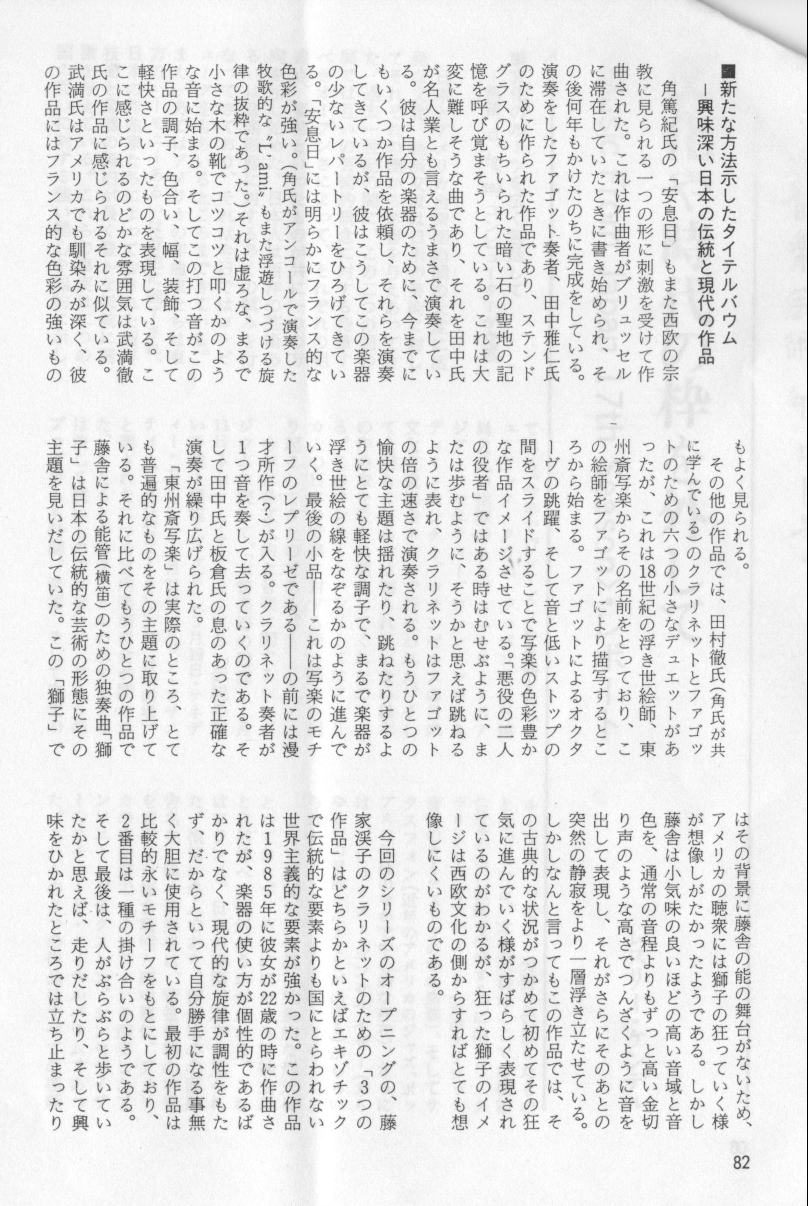 ■新たな方法示したタイテルバウム
－興味深い日本の伝統と現代の作品
　角篤紀氏の「安息日」もまた西欧の宗
教に見られる一つの形に刺激を受けて作
曲された。これは作曲者がブリュッセル
に滞在していたときに書き始められ、そ
の後何年もかけたのちに完成をしている。
演奏をしたファゴット奏者、田中雅仁氏
のために作られた作品であり、ステンド
グラスのもちいられた暗い石の聖地の記
憶を呼び覚まそうとしている。これは大
変に難しそうな曲であり、それを田中氏
が名人業とも言えるうまさで演奏してい
る。彼は自分の楽器のために、今までに
もいくつか作品を依頼し、それらを演奏
してきているが、彼はこうしてこの楽器
の少ないレパートリーをひろげてきてい
る。「安息日」には明らかにフランス的な
色彩が強い。（角氏がアンコールで演奏した
牧歌的な〝L'ami〟もまた浮遊しつづける旋
律の抜粋であった。）それは虚ろな、まるで
小さな木の靴でコツコツと叩くかのよう
な音に始まる。そしてこの打つ音がこの
作品の調子、色合い、幅、装飾、そして
軽快さといったものを表現している。こ
こに感じられるのどかな雰囲気は武満徹
氏の作品に感じられるそれに似ている。
武満氏はアメリカでも馴染みが深く、彼
の作品にはフランス的な色彩の強いもの
もよく見られる。
　その他の作品では、田村徹氏（角氏が共
に学んでいる）のクラリネットとファゴッ
トのための六つの小さなデュエットがあ
ったが、これは18世紀の浮き世絵師、東
州斎写楽からその名前をとっており、こ
の絵師をファゴットにより描写するとこ
ろから始まる。ファゴットによるオクタ
ーヴの跳躍、そして音と低いストップの
間をスライドすることで写楽の色彩豊か
な作品イメージさせている。「悪役の二人
の役者」ではある時はむせぶように、ま
たは歩むように、そうかと思えば跳ねる
ように表れ、クラリネットはファゴット
の倍の速さで演奏される。もうひとつの
愉快な主題は揺れたり、跳ねたりするよ
うにとても軽快な調子で、まるで楽器が
浮き世絵の線をなぞるかのように進んで
いく。最後の小品――これは写楽のモチ
ーフのレプリーゼである――の前には漫
才所作（？）が入る。クラリネット奏者が
１つ音を奏して去っていくのである。そ
して田中氏と板倉氏の息のあった正確な
演奏が繰り広げられた。
　「東州斎写楽」は実際のところ、とて
も普遍的なものをその主題に取り上げて
いる。それに比べてもうひとつの作品で
藤舎による能管（横笛）のための独奏曲「獅
子」は日本の伝統的な芸術の形態にその
主題を見いだしていた。この「獅子」で
はその背景に藤舎の能の舞台がないため、
アメリカの聴衆には獅子の狂っていく様
が想像しがたかったようである。しかし
藤舎は小気味の良いほどの高い音域と音
色を、通常の音程よりもずっと高い金切
り声のような高さでつんざくように音を
出して表現し、それがさらにそのあとの
突然の静寂をより一層浮き立たせている。
しかしなんと言ってもこの作品では、そ
の古典的な状況がつかめて初めてその狂
気に進んでいく様がすばらしく表現され
ているのがわかるが、狂った獅子のイメ
ージは西欧文化の側からすればとても想
像しにくいものである。
　今回のシリーズのオープニングの、藤
家渓子のクラリネットのための「３つの
作品」はどちらかといえばエキゾチック
で伝統的な要素よりも国にとらわれない
世界主義的な要素が強かった。この作品
は１９８５年に彼女が22歳の時に作曲さ
れたが、楽器の使い方が個性的であるば
かりでなく、現代的な旋律が調性をもた
ず、だからといって自分勝手になる事無
く大胆に使用されている。最初の作品は
比較的永いモチーフをもとにしており、
２番目は一種の掛け合いのようである。
そして最後は、人がぶらぶらと歩いてい
たかと思えば、走りだしたり、そして興
味をひかれたところでは立ち止まったり
82